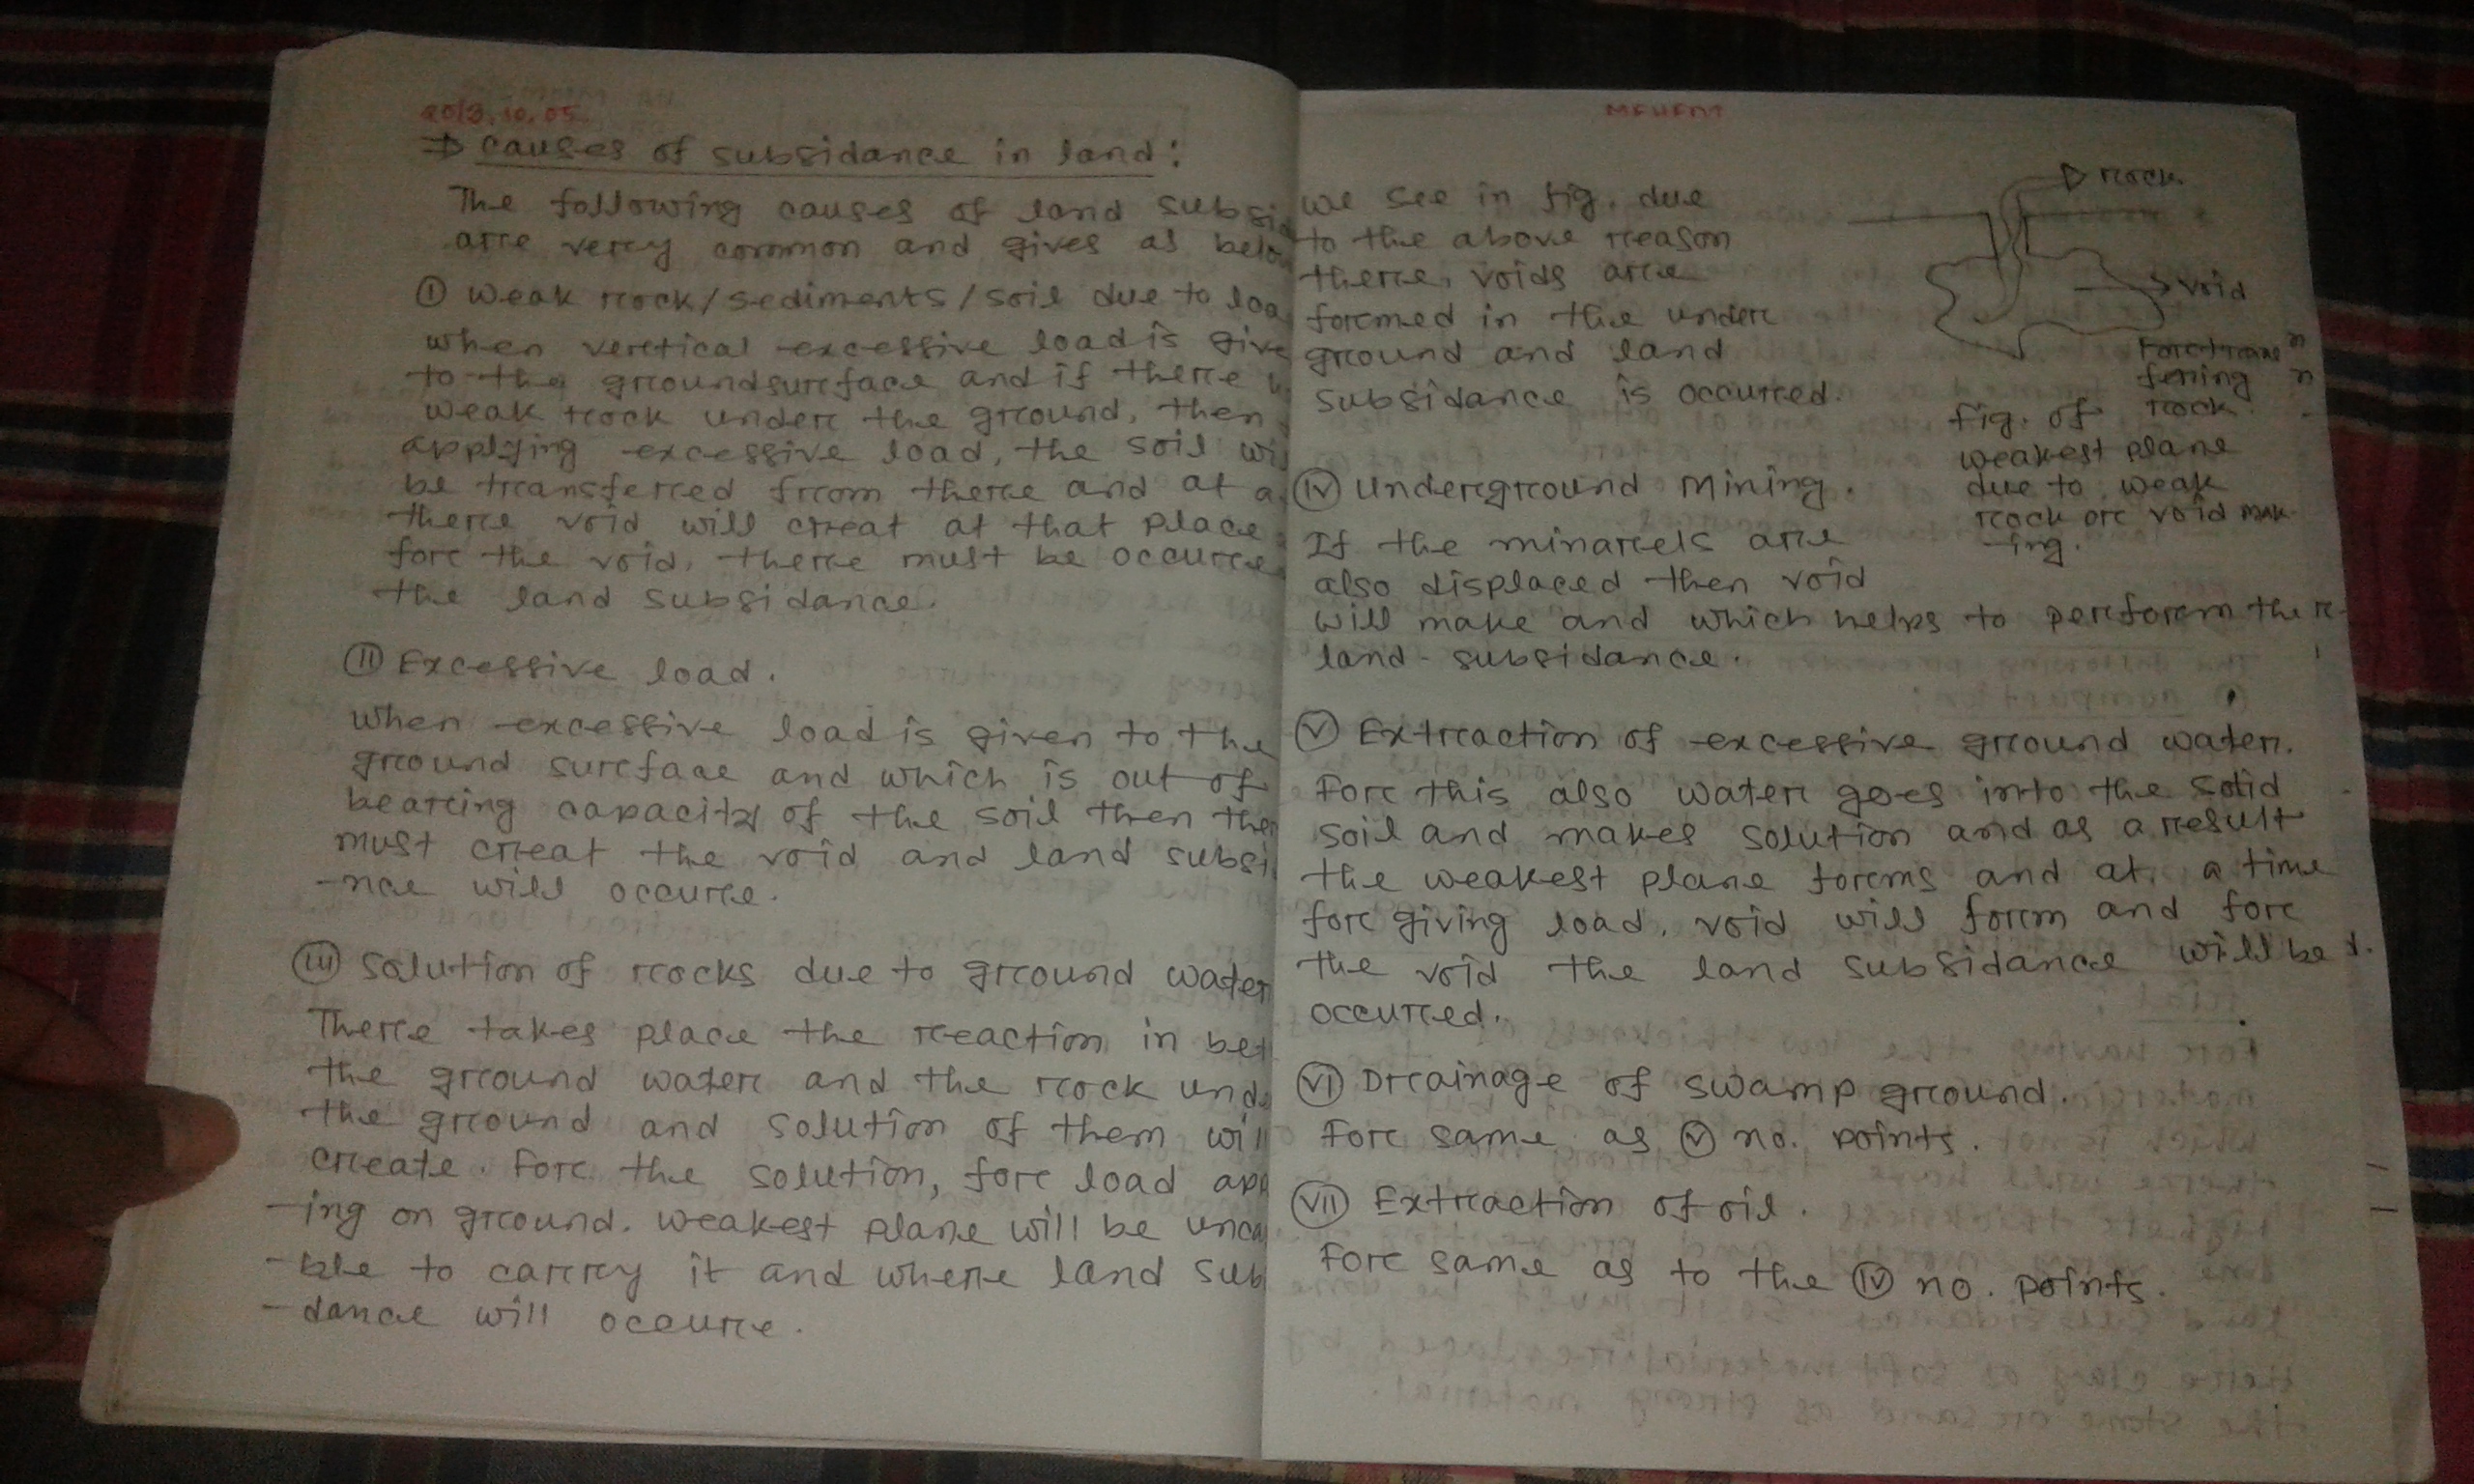 2013.10.05
⇒ Causes of subsidance in land:
The following causes of land subsi
are very common and gives as belo
① Weak rock/sediments/soil due to loa
when vertical excessive load is give
to the ground surface and if there
weak rock under the ground, then
applying excessive load, the soil wi
be transferred from there and at a
there void will creat at that place
for the void, there must be occurre
the land subsidance.
Ⅱ Excessive load.
when excessive load is given to the
ground surface and which is out of
bearing capacity of the soil then the
must creat the void and land subsi
-nce will occure.
Ⅲ Solution of rocks due to ground water
There takes place the reaction in bet
the ground water and the rock unde
the ground and solution of them will
create. For the solution, for load app
-ing on ground. weakest plane will be unca
-ble to carry it and where land sub
-dance will occure.
we see in fig. due
to the above reason
there, voids are
formed in the under
ground and land
subsidance is occurred.
rock
void
For trans
fering
rock.
fig. of
weakest plane
due to weak
rock or void mak
-ing.
Ⅳ Underground Mining.
If the minarels are
also displaced then void
will make and which helps to perform the
land-subsidance.
Ⅴ Extraction of excessive ground water.
For this also water goes into the solid
soil and makes solution and as a result
the weakest plane forms and at a time
for giving load, void will form and for
the void the land subsidance will be
occurred.
Ⅵ Drainage of swamp ground.
For same as Ⅴ no. points.
Ⅶ Extraction of oil.
For same as to the Ⅳ no. points.